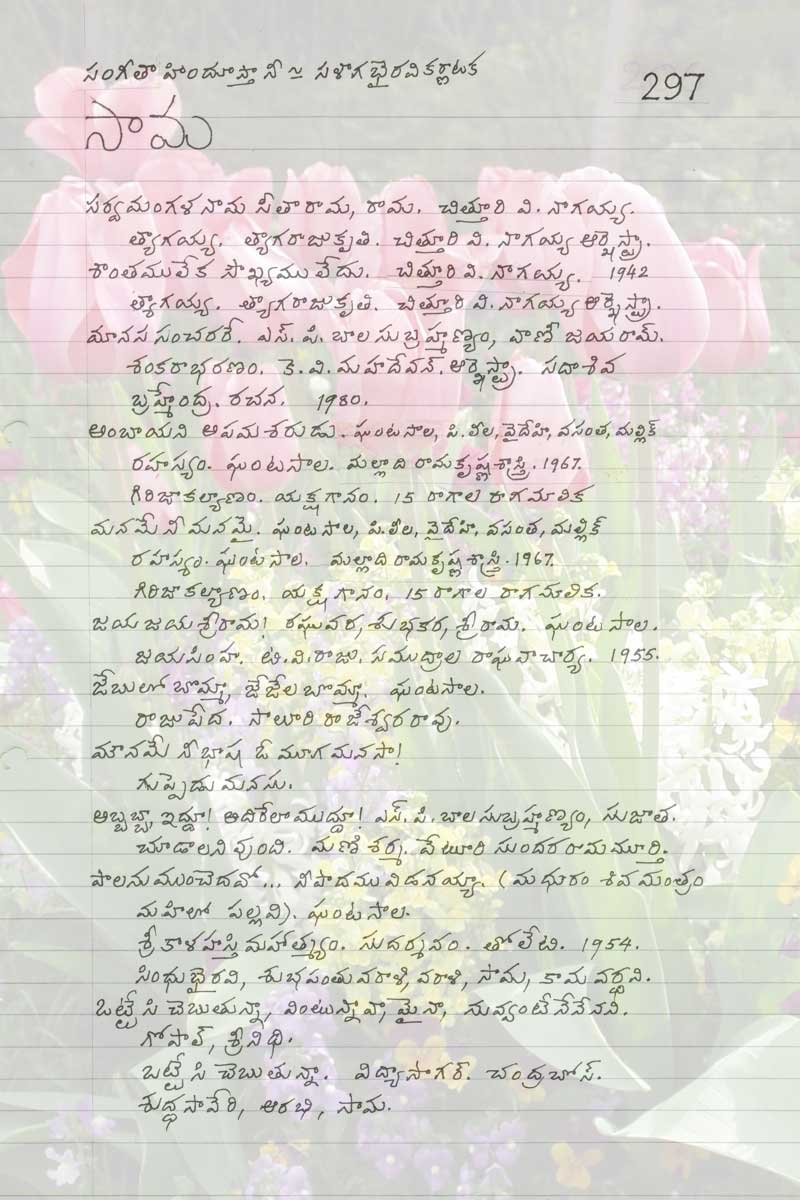 సంగీతా హిందూస్తానీ ~ సళగభైరవి కర్ణాటక
297
సామ
సర్వమంగళనామ సీతారామ, రామ. చిత్తూరి వి. నాగయ్య.
త్యాగయ్య. త్యాగరాజుకృతి. చిత్తూరి వి. నాగయ్య ఆర్కెస్ట్రా.
శాంతములేక సౌఖ్యములేదు. చిత్తూరి వి. నాగయ్య. 1942
త్యాగయ్య. త్యాగరాజుకృతి. చిత్తూరి వి. నాగయ్య ఆర్కెస్ట్రా.
మానస సంచరరే. ఎస్. పి. బాలసుబ్రహ్మణ్యం, వాణీ జయరామ్.
శంకరాభరణం. కె. వి. మహదేవన్. ఆర్కెస్ట్రా. సదాశివ
బ్రహ్మేంద్ర. రచన. 1980.
అంబాయని అసమశరుడు. ఘంటసాల, పి.లీల, వైదేహి, వసంత, మల్లిక్
రహస్యం. ఘంటసాల. మల్లాది రామకృష్ణశాస్త్రి. 1967.
గిరిజాకల్యాణం. యక్షగానం. 15 రాగాల రాగమాలిక
మనమే నీమనమై. ఘంటసాల, పి.లీల, వైదేహి, వసంత, మల్లిక్
రహస్యం. ఘంటసాల. మల్లాది రామకృష్ణశాస్త్రి. 1967.
గిరిజాకల్యాణం. యక్షగానం. 15 రాగాల రాగమాలిక.
జయ జయ శ్రీరామ! రఘువర, శుభకర, శ్రీరామ. ఘంటసాల.
జయసింహ. టి.వి.రాజు. సముద్రాల రాఘవాచార్య. 1955.
జేబులో బొమ్మా, జేజేల బొమ్మా. ఘంటసాల.
రాజుపేద. సాలూరి రాజేశ్వరరావు.
మౌనమే నీభాష ఓ మూగమనసా!
గుప్పెడు మనసు.
అబ్బబ్బా, ఇద్దూ! అదిరేలా ముద్దూ! ఎస్. పి. బాలసుబ్రహ్మణ్యం, సుజాత.
చూడాలనివుంది. మణిశర్మ. వేటూరి సుందరరామమూర్తి.
పాలనుముంచెదవో... నీపాదమువిడనయ్యా. (మధురం శివమంత్రం
మహిలో పల్లవి). ఘంటసాల.
శ్రీకాళహస్తి మహాత్మ్యం. సుదర్శనం. తోలేటి. 1954.
సింధుభైరవి, శుభపంతువరాళి, వరాళి, సామ, కామవర్ధని.
ఒట్టేసి చెబుతున్నా, వింటున్నావా, మైనా, నువ్వంటే నేనేనని.
గోపాల్, శ్రీనిధి.
ఒట్టేసి చెబుతున్నా. విద్యాసాగర్. చంద్రబోస్.
శుద్ధసావేరి, ఆరభి, సామ.